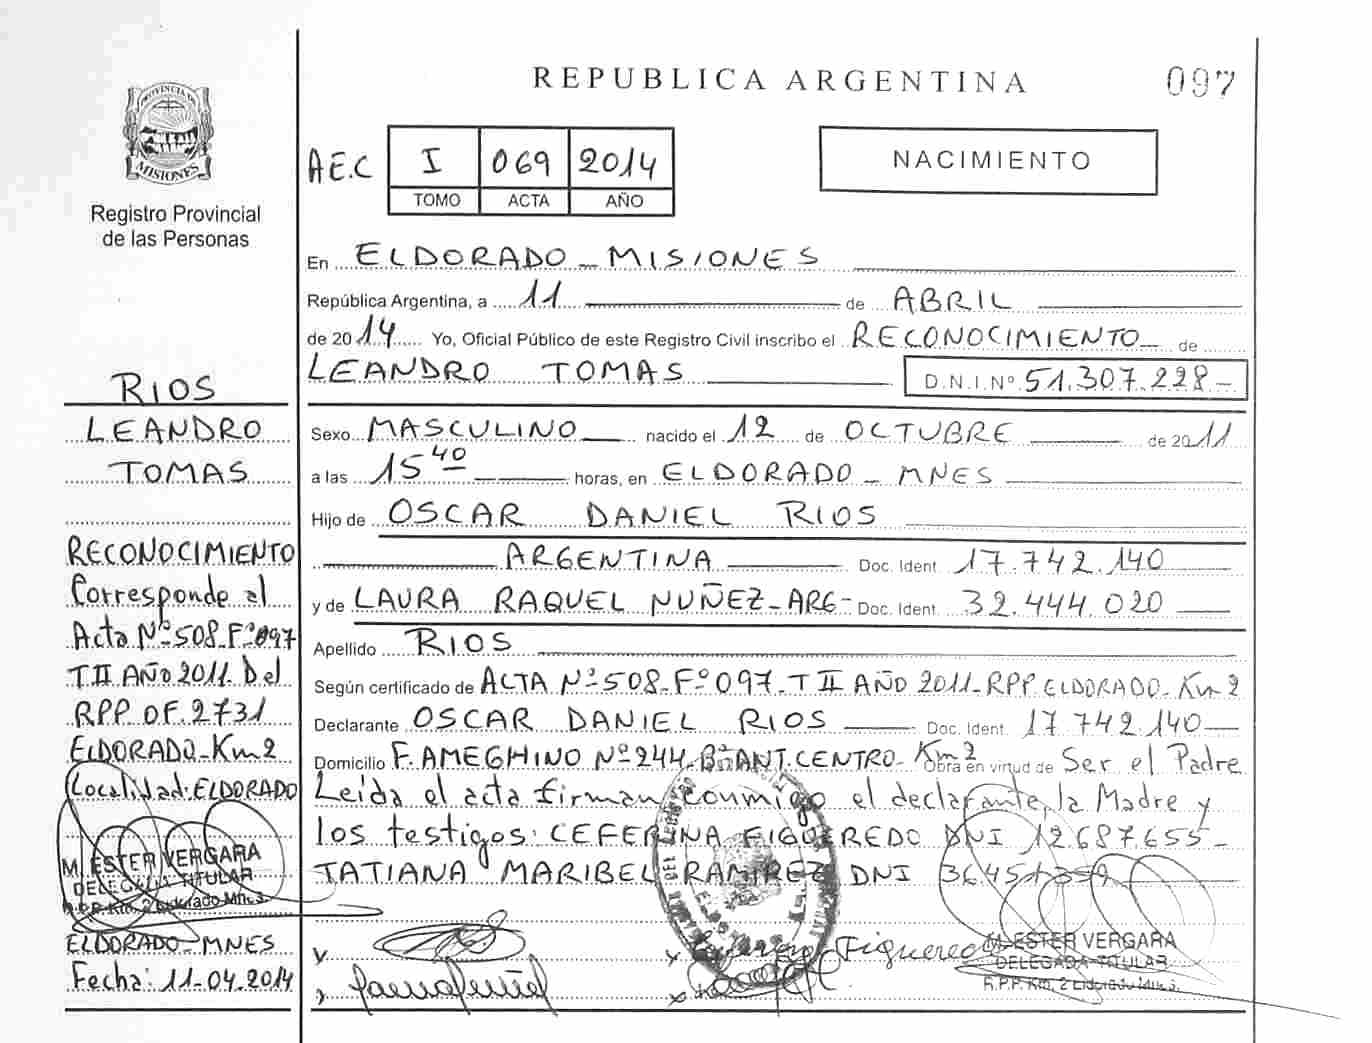 REPUBLICA ARGENTINA
097
PROVINCIA DE
MISIONES
Registro Provincial
de las Personas
AEC I 069 2014
TOMO ACTA AÑO
NACIMIENTO
En ELDORADO - MISIONES
República Argentina, a 11 de ABRIL
de 2014 Yo, Oficial Público de este Registro Civil inscribo el RECONOCIMIENTO de
LEANDRO TOMAS D.N.I.Nº 51.307.228-
Sexo MASCULINO nacido el 12 de OCTUBRE de 2011
a las 15 40 horas, en ELDORADO - MNES
Hijo de OSCAR DANIEL RIOS
ARGENTINA Doc. Ident. 17.742.140
y de LAURA RAQUEL NUÑEZ-ARG- Doc. Ident. 32.444.020
Apellido RIOS
Según certificado de ACTA Nº508-Fº097-T II AÑO 2011-RPP ELDORADO-Km2
Declarante OSCAR DANIEL RIOS Doc. Ident. 17.742.140
Domicilio F. AMEGHINO Nº244-Bº ANT. CENTRO-Km2 Obra en virtud de Ser el Padre
Leída el acta firman conmigo el declarante, la Madre y
los testigos: CEFERINA FIGUEREDO DNI 12.687.655-
TATIANA MARIBEL RAMIREZ DNI
M. ESTER VERGARA
DELEGADA TITULAR
R.P.P. Km. 2 Eldorado Mns.
RIOS
LEANDRO
TOMAS
RECONOCIMIENTO
Corresponde al
Acta Nº508-Fº097
T II AÑO 2011. Del
RPP OF. 2731
ELDORADO-Km2
Localidad: ELDORADO
M. ESTER VERGARA
DELEGADA TITULAR
R.P.P. Km. 2 Eldorado Mns.
ELDORADO-MNES
Fecha: 11-04-2014